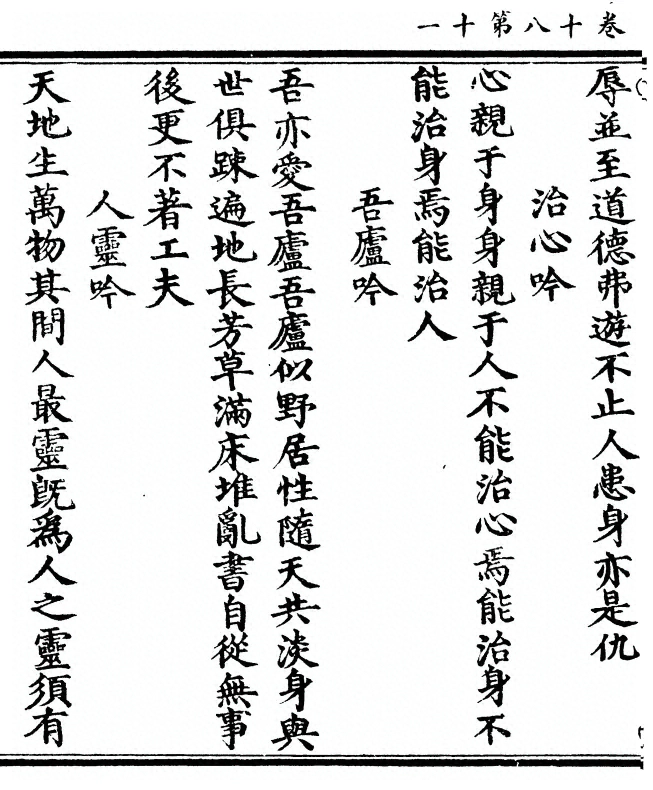 卷十八第十一
辱並至道德弗遊不止人患身亦是仇
治心吟
心親于身身親于人不能治心焉能治身不
能治身焉能治人
吾廬吟
吾亦愛吾廬吾廬似野居性隨天共淡身與
世俱踈遍地長芳草滿床堆亂書自從無事
後更不著工夫
人靈吟
天地生萬物其間人最靈旣爲人之靈須有